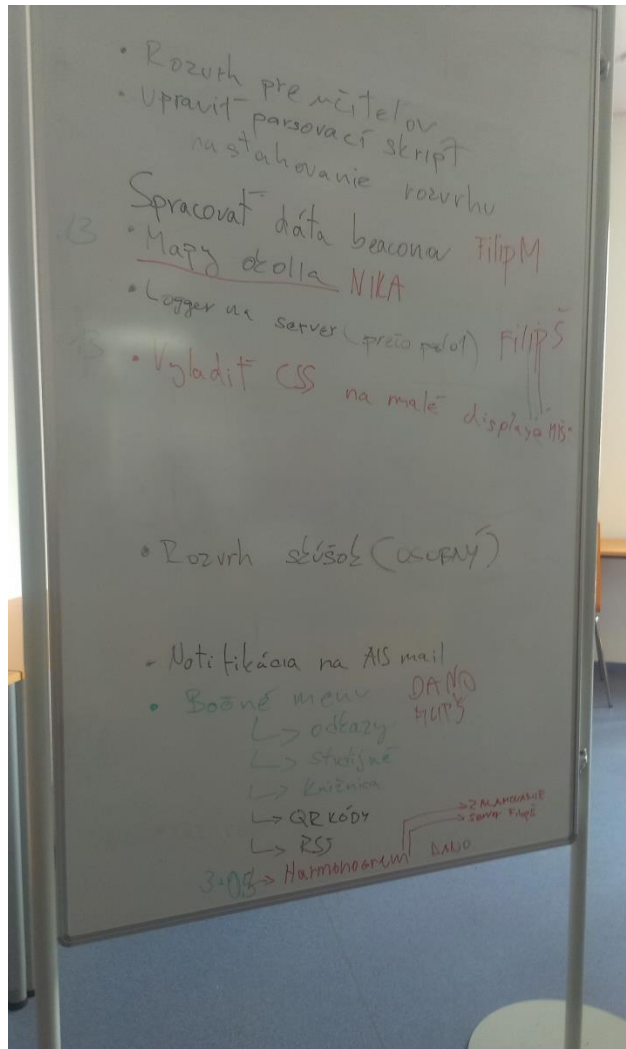 • Rozvrh pre učiteľov
• Upraviť parsovací skript
na sťahovanie rozvrhu
Spracovať dáta beacona FilipM
• Mapy okolia NIKA
• Logger na server (prečo padol) FilipŠ
• Vyladiť CSS na malé displaye
• Rozvrh skúšok (OSOBNÝ)
- Notifikácia na AIS mail
• Bočné menu DAŇO
↳ odkazy
↳ študijné
↳ knižnica
↳ QR KÓDY
↳ RSS
→ Harmonogram DANO
→ server FilipŠ